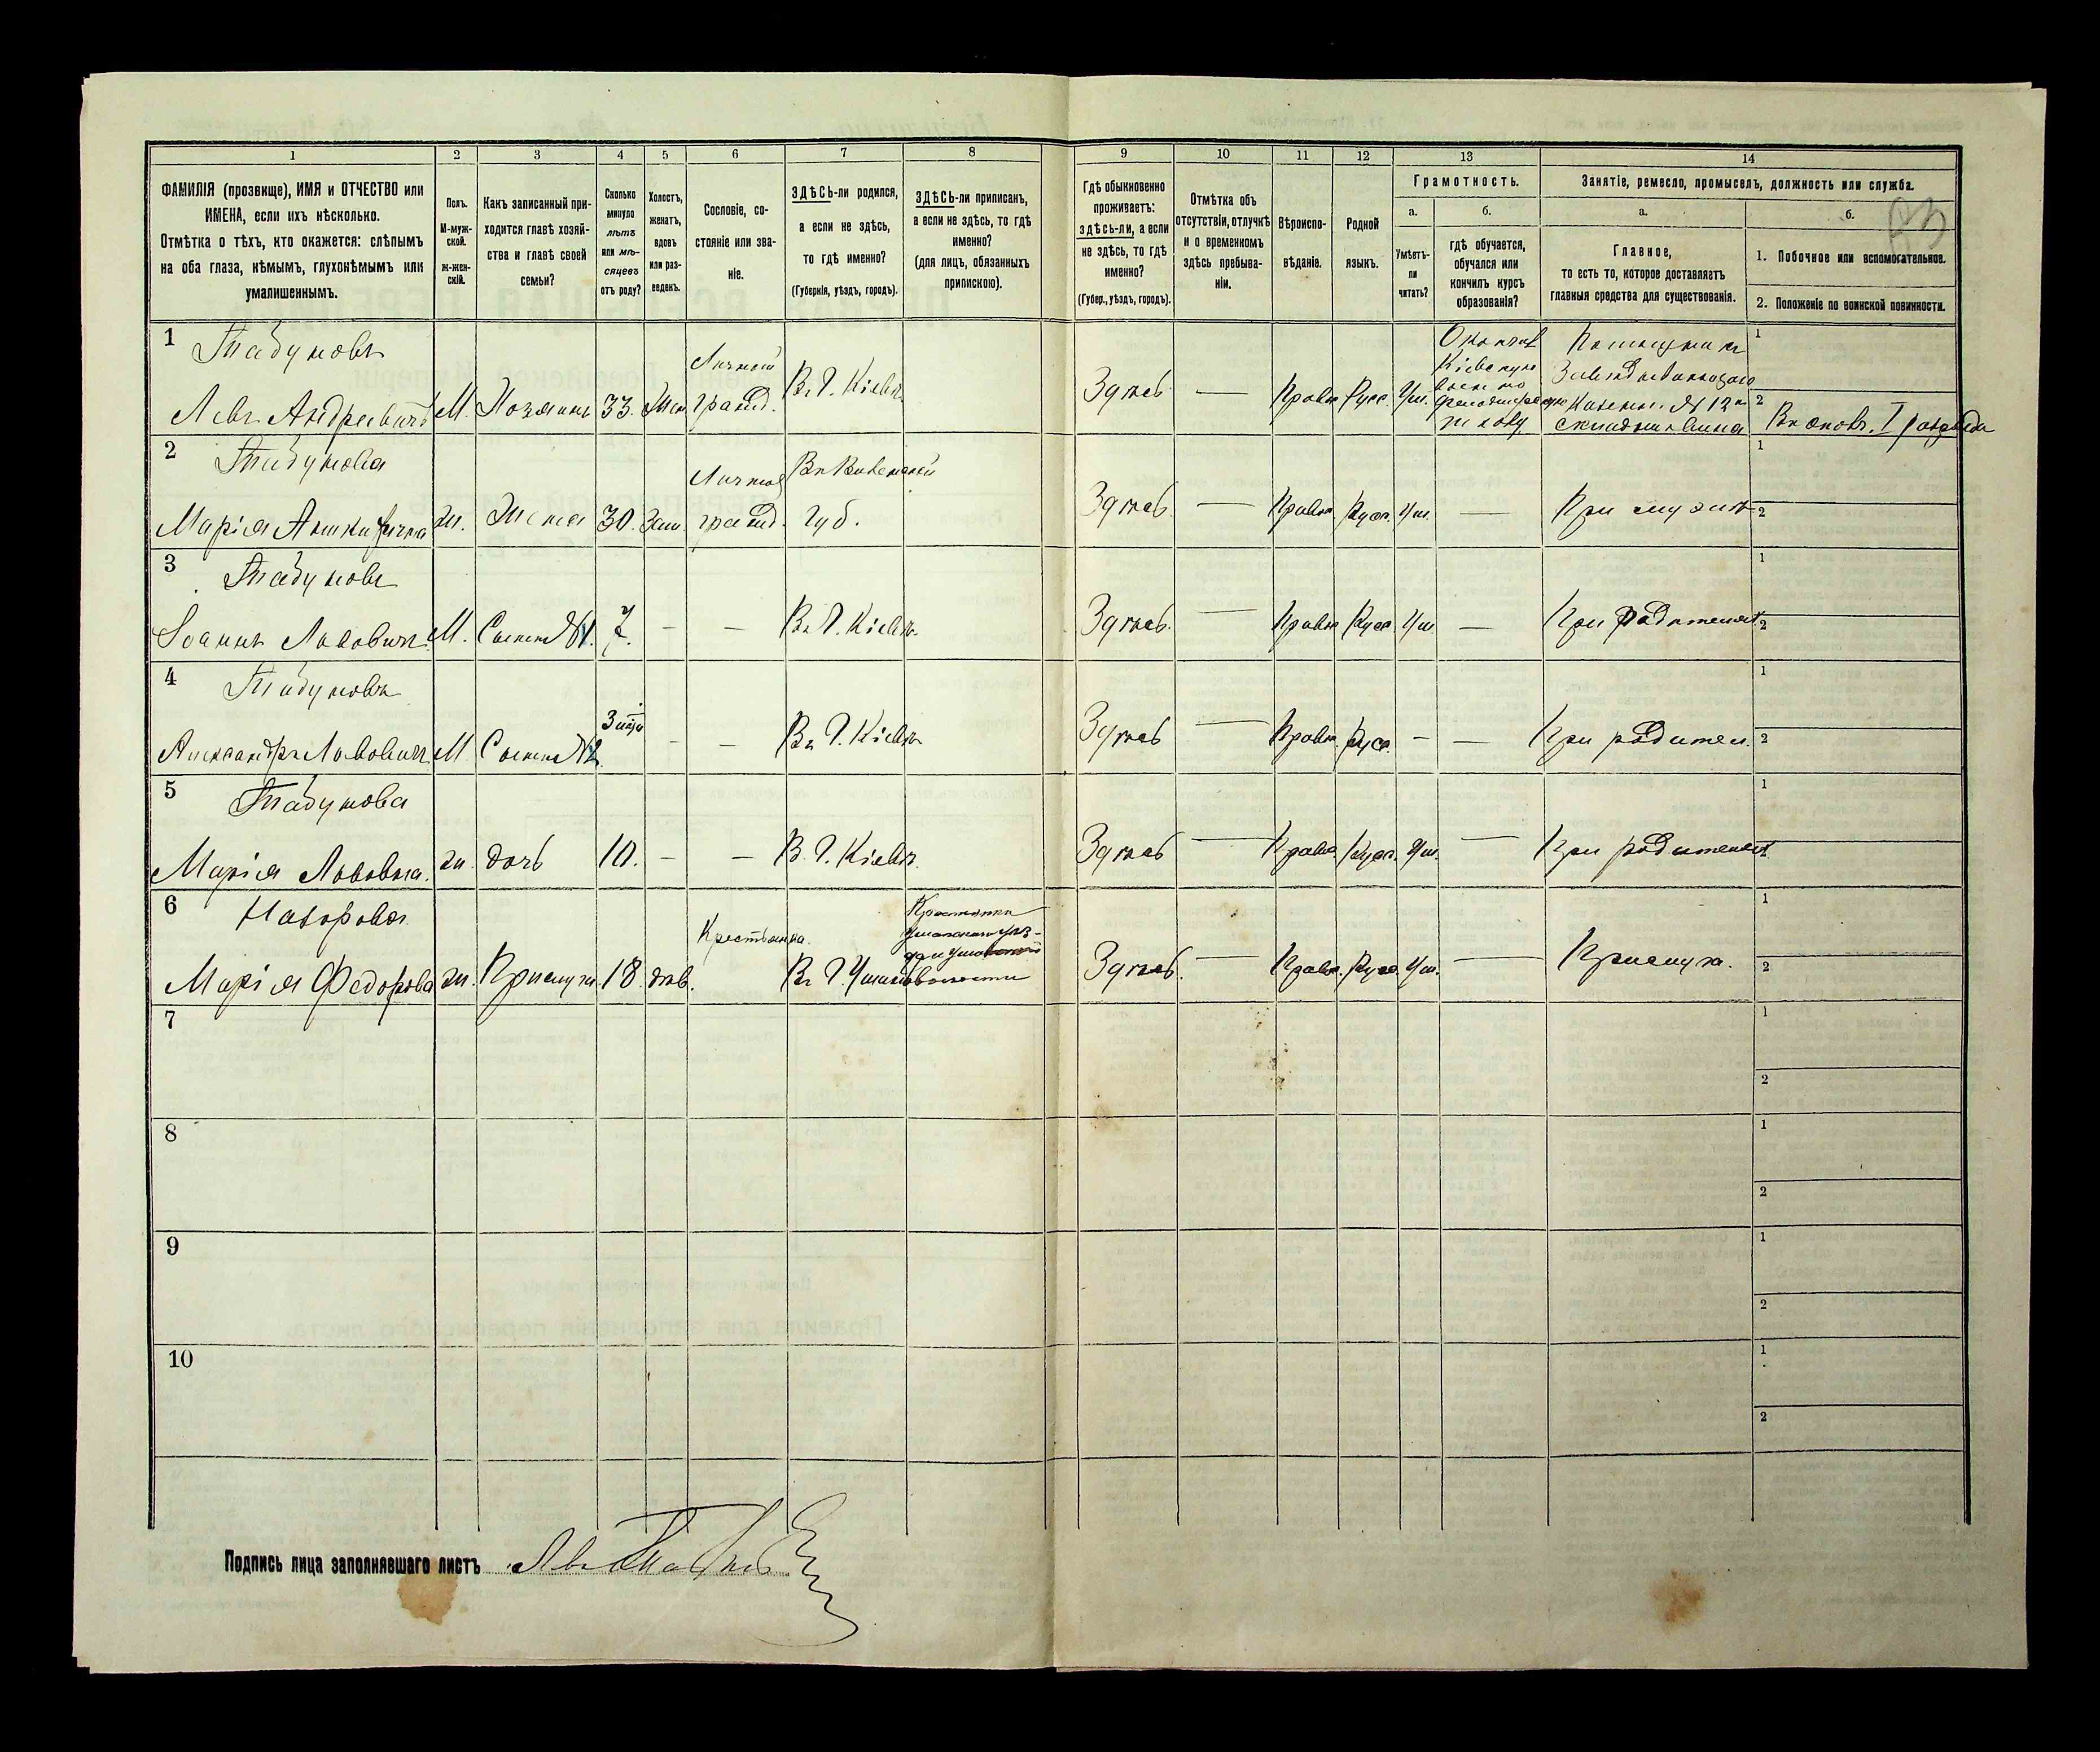 1 2 3 4 5 6 7 8 9 10 11 12 13 14
ФАМИЛІЯ (прозвище), ИМЯ и ОТЧЕСТВО или
ИМЕНА, если ихъ нѣсколько.
Отмѣтка о тѣхъ, кто окажется: слѣпымъ
на оба глаза, нѣмымъ, глухонѣмымъ или
умалишеннымъ.
Полъ.
М-муж-
ской.
Ж-жен-
скій.
Какъ записанный при-
ходится главѣ хозяй-
ства и главѣ своей
семьи?
Сколько
минуло
лѣтъ
или мѣ-
сяцевъ
отъ роду?
Холостъ,
женатъ,
вдовъ
или раз-
веденъ.
Сословіе, со-
стояніе или зва-
ніе.
ЗДѢСЬ-ли родился,
а если не здѣсь,
то гдѣ именно?
(Губернія, уѣздъ, городъ).
ЗДѢСЬ-ли приписан,
а если не здѣсь, то гдѣ
именно?
(для лицъ, обязанныхъ
припискою).
Гдѣ обыкновенно
проживаетъ:
здѣсь-ли, а если
не здѣсь, то гдѣ
именно?
(Губер., уѣздъ, городъ).
Отмѣтка объ
отсутствіи, отлучкѣ
и о временномъ
здѣсь пребыва-
ніи.
Вѣроиспо-
вѣданіе.
Родной
языкъ.
Грамотность.
а.
Умѣетъ-
ли
читать?
б.
гдѣ обучается,
обучался или
кончилъ курсъ
образованія?
Занятіе, ремесло, промыселъ, должность или служба.
а.
Главное,
то есть то, которое доставляетъ
главныя средства для существованія.
б.
1. Побочное или вспомогательное.
2. Положеніе по воинской повинности.
1 Табуновъ
Левъ Андреевичъ М. Хозяинъ 33. Жен.
Личной
гражд.
Въ Г. Кіевѣ
Здѣсь — Правос. Русс. Ум.
Окончилъ
Кіевскую
военно
фельдшерскую
школу
Помощникъ
Завѣдывающаго
Казенн. № 12
складомъ вина
1
2 Въ Іополч. I разряда
2 Табунова
Марія ж. Жена 30. Зам.
Личной
гражд.
Въ Витебской
Губ.
Здѣсь — Правос. Русс. Ум. — При мужѣ
1
2
3 Табуновъ
Іоаннъ Львовичъ М. Сынъ №1. 7. — — Въ Г. Кіевѣ
Здѣсь. — Правос. Русс. Ум. — При родителях
1
2
4 Табуновъ
Александръ Львовичъ М Сынъ №2. — — Въ Г. Кіевѣ
Здѣсь — Правос. Русс. — — При родител.
1
2
5 Табунова
Марія Львовна. ж. дочь 10. — — В. Г. Кіевѣ
Здѣсь — Правос. Русс. Ум. — При родителях
1
2
6 Назорова
Марія Федорова ж. Прислуга 18. дѣв.
Крестьянка.
Въ Г. Умани
Крестьянка
Уманскаго уѣз-
волости
Здѣсь. — Правос. Русс. Ум. — Прислуга.
1
2
7
1
2
8
1
2
9
1
2
10
1
2
Подпись лица заполнявшаго листъ Левъ Табуновъ